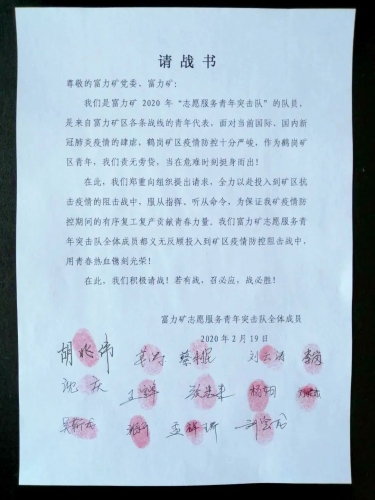 请战书
尊敬的富力矿党委、富力矿：
我们是富力矿 2020 年“志愿服务青年突击队”的队员，
是来自富力矿区各条战线的青年代表，面对当前国际、国内新
冠肺炎疫情的肆虐，鹤岗矿区疫情防控十分严峻，作为鹤岗矿
区青年，我们责无旁贷，当在危难时刻挺身而出！
在此，我们郑重向组织提出请求，全力以赴投入到矿区抗
击疫情的阻击战中，服从指挥、听从命令，为保证我矿疫情防
控期间的有序复工复产贡献青春力量。我们富力矿志愿服务青
年突击队全体成员都义无反顾投入到矿区疫情防控阻击战中，
用青春热血镌刻光荣！
在此，我们积极请战！若有战，召必应，战必胜！
富力矿志愿服务青年突击队全体成员
2020 年 2 月 19 日
胡兆伟
沈庆 杨钥